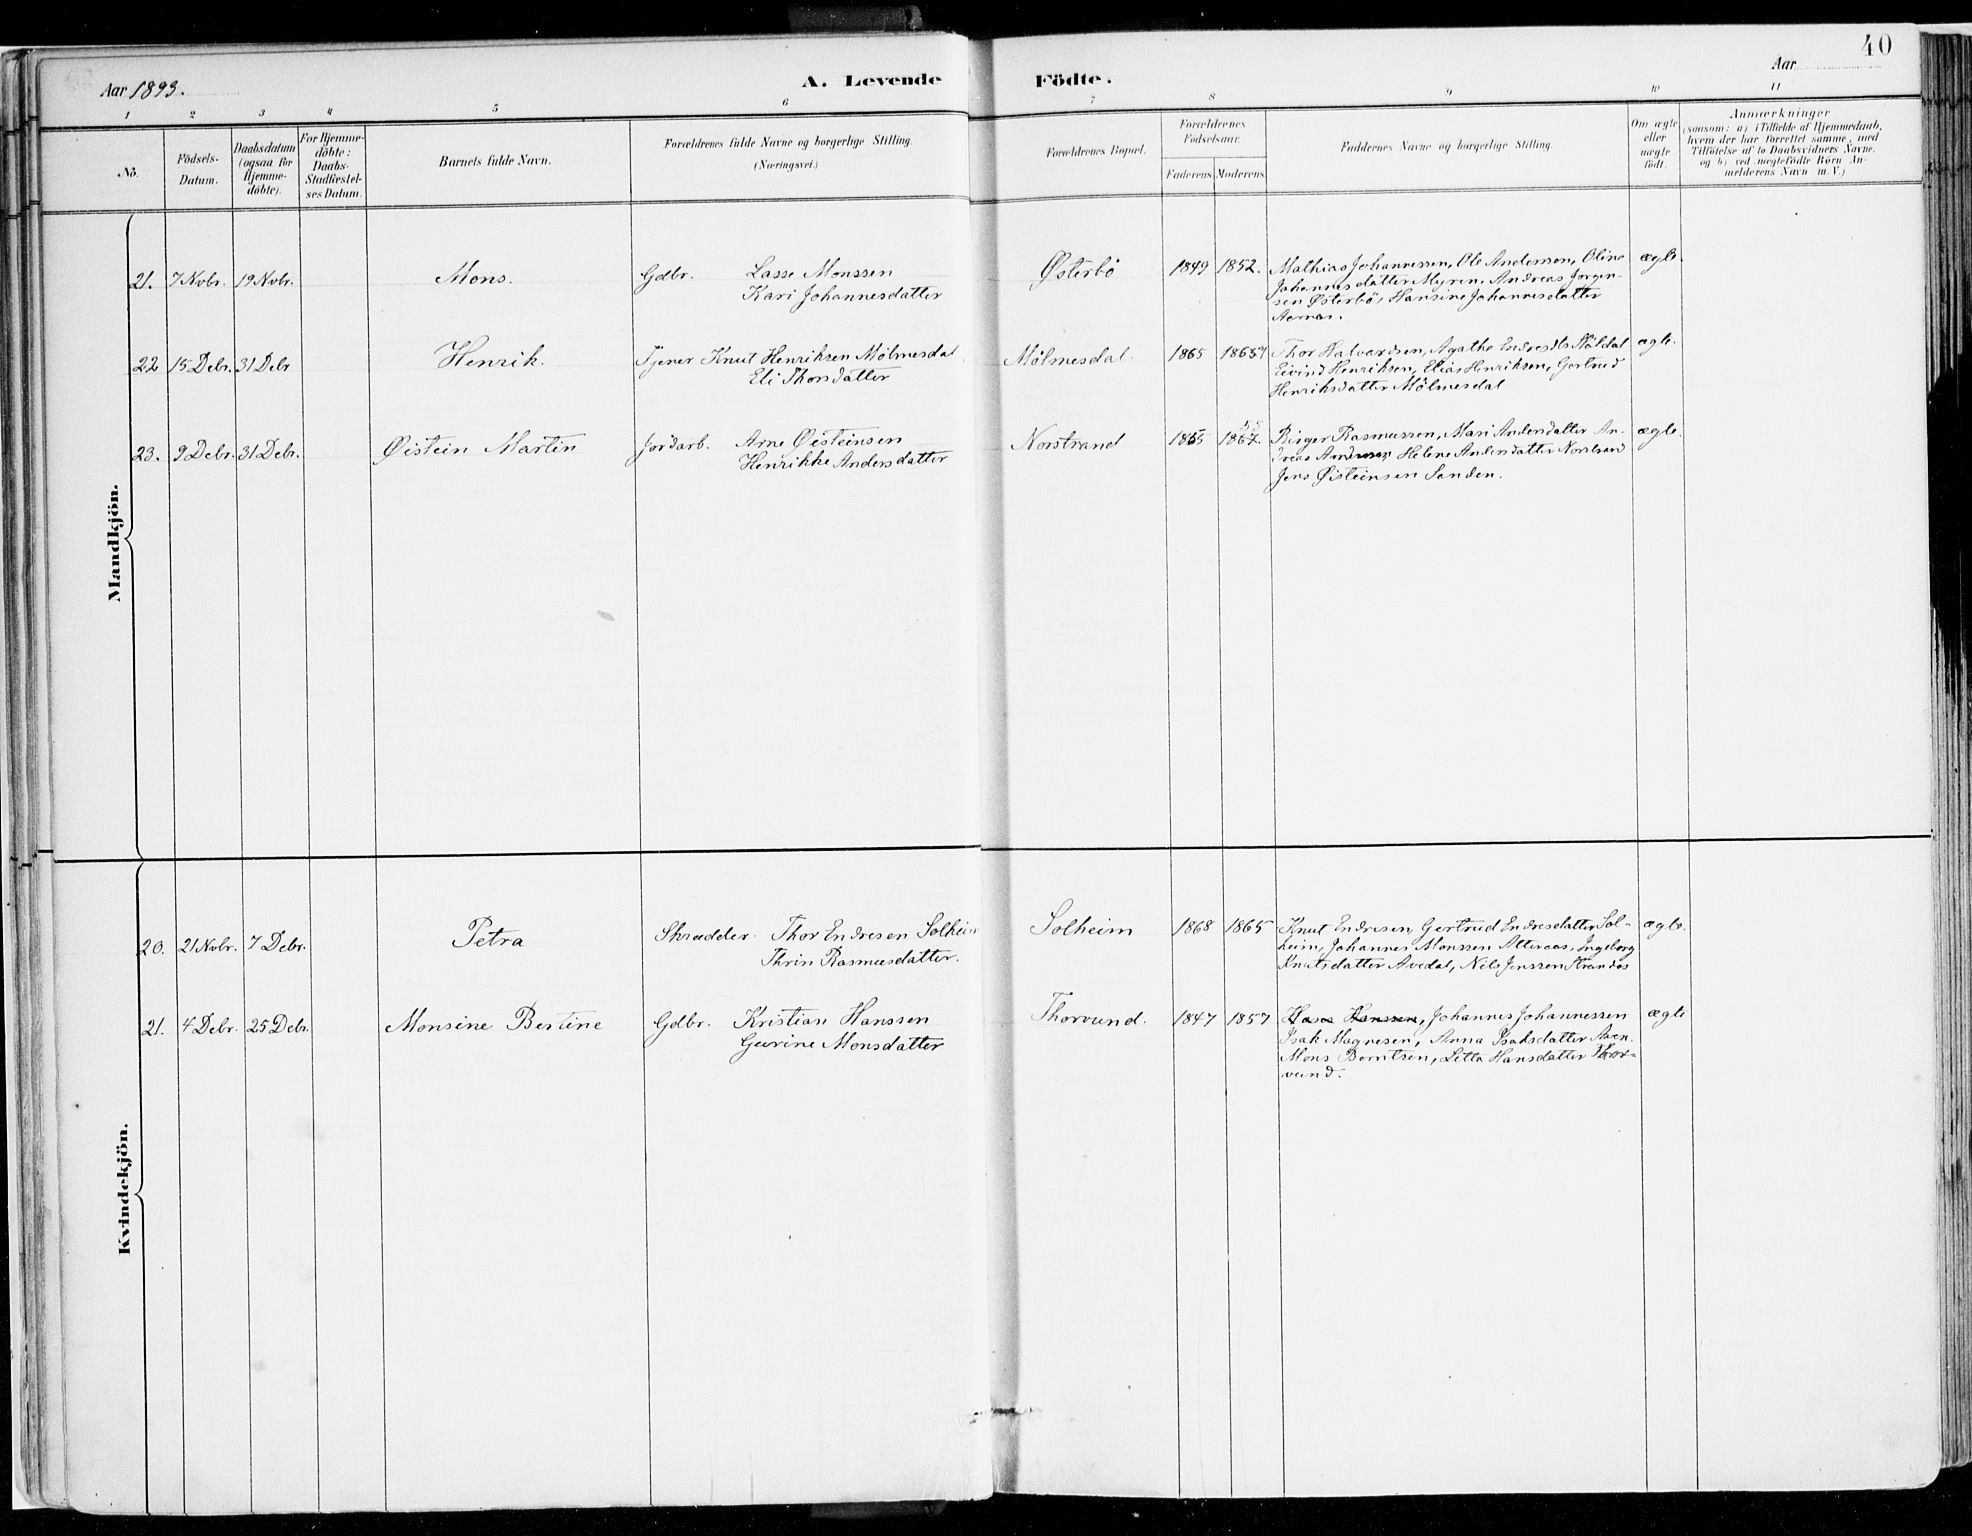 40
Aar 1893.
A. Levende Födte.
Aar
1 2 3 4 5 6 7 8 9 10 11
No.
Födsels-Datum.
Daabsdatum (ogsaa for Hjemme-döbte).
For Hjemme-döbte: Daabs-Stadfæstel-ses Datum.
Barnets fulde Navn.
Forældrenes fulde Navne og borgerlige Stilling.
(Næringsvei.)
Forældrenes Bopæl.
Forældrenes Födselsaar.
Faderens Moderens
Faddernes Navne og borgerlige Stilling.
Om ægte eller uægte födt.
Anmærkninger
(saasom: a) i Tilfælde af Hjemmedaab,
hvem der har forrettet samme, med
Tilföielse af to Daabsvidners Navne.
og b) ved uægtefödte Börn An-
melderens Navn m. V.)
Mandkjön.
21. 7 Nvbr. 19 Nvbr. Mons. Gdbr. Lasse Monssen Østerbö 1849 1852. Mathias Johannessen, Ole Andersen, Oline ægte.
Kari Johannesdatter Johannesdatter Myren, Andreas Jörgen-
sen Østerbö, Hansine Johannesdatter
22 15 Debr. 31 Debr Henrik. Tjener Knut Henriksen Mölmesdal Mölmesdal. 1865 Thor Halvardsen, Agathe ægte.
Eli Thorsdatter Eivind Henriksen, Elias Henriksen, Gertrud
Henriksdatter Mölmesdal
23. 9 Debr. 31 Debr. Øistein Martin Jordarb. Arne Øisteinsen Norstrand Birger Rasmussen, Mari Andersdatter An- ægte.
Henrikke Andersdatter dreas Helene Andersdatter Norstrand
Jens Øisteinsen Sanden.
Kvindekjön.
20. 21 Nvbr. 7 Debr. Petra Skrædder. Thor Endresen Solheim Solheim 1868 1865 Knut Endresen, Gertrud Endresdatter Sol- ægte.
Thrin Rasmusdatter. heim, Johannes Monssen Atteraas, Ingeborg
Knutsdatter Avedal, Nils Jenssen
21. 4 Debr. 25 Debr. Monsine Bertine Gdbr. Kristian Hanssen Thorvund. 1847 1857 Hans Hanssen, Johannes Johannessen ægte
Gurine Monsdatter Isak Magnesen, Anna Isaksdatter
Mons Berntsen, Letta Hansdatter Thor-
vund.